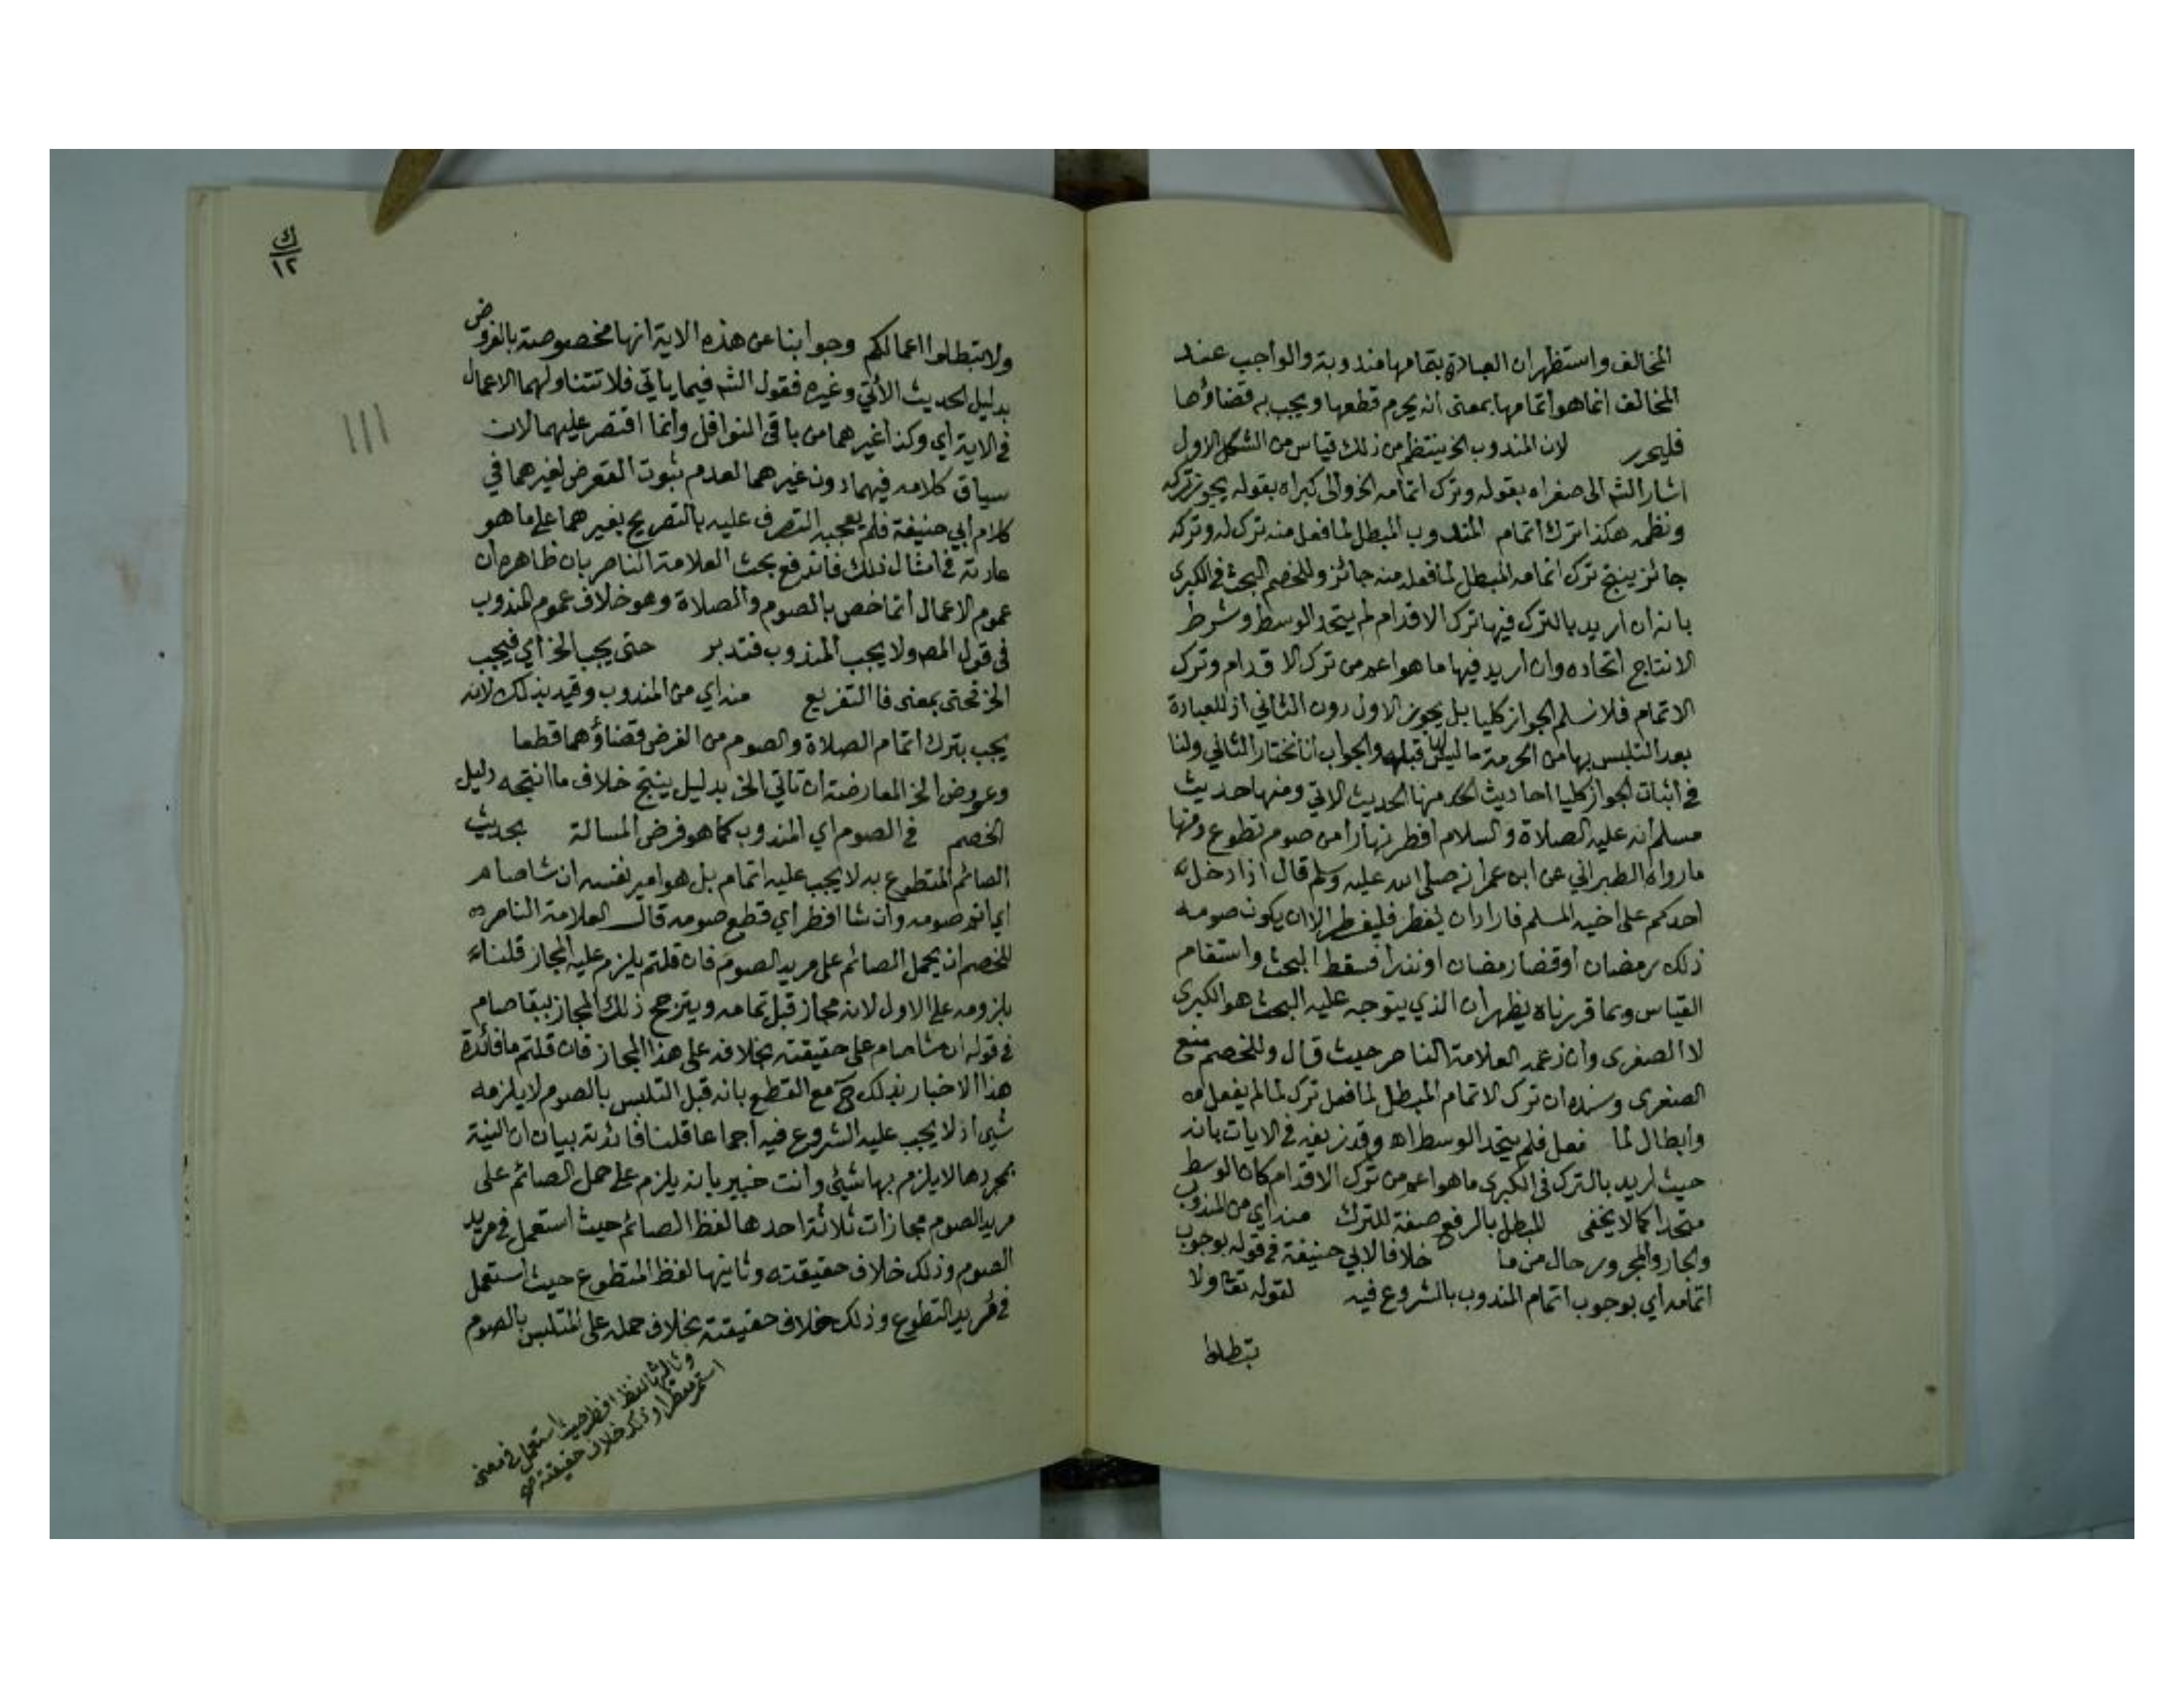 المخالف واستظهر ان العبادة بتمامها مندوبة والواجب عند
المخالف انما هو اتمامها بمعنى انه يحرم قطعها ويجب به قضاؤها
فليحرر لان المندوب الخ ينتظم من ذلك قياس من الشكل الاول
اشار الشه الى صغراه بقوله وترك اتمامه الخ والى كبراه بقوله يجوز تركه
ونظمه هكذا ترك اتمام المندوب المبطل لما فعل منه ترك له وتركه
جائز ينتج ترك اتمامه المبطل لما فعله منه جائز وللخصم البحث في الكبرى
بانه ان اريد بالترك فيها ترك الاقدام لم يتحد الوسط وشرط
الانتاج اتحاده وان اريد فيها ما هو اعم من ترك الاقدام وترك
الاتمام فلا نسلم الجواز كليا بل يجوز الاول دون الثاني اذ للعبادة
بعد التلبس بها من الحرمة ما ليس لها قبله والجواب انا نختار الثاني ولنا
في اثبات الجواز كليا احاديث منها الحديث الاتي ومنها حديث
مسلم انه عليه الصلاة والسلام افطر نهارا من صوم تطوع ومنها
ما رواه الطبراني عن ابن عمر انه صلى الله عليه وسلم قال اذا دخل
احدكم على اخيه المسلم فاراد ان يفطر فليفطر الا ان يكون صومه
ذلك رمضان او قضا رمضان او نذرا فسقط البحث واستقام
القياس وبما قررناه يظهر ان الذي يتوجه عليه البحث هو الكبرى
لا الصغرى وان زعمه العلامة الناصر حيث قال وللخصم منع
الصغرى وسنده ان ترك الاتمام المبطل لما فعل ترك لما لم يفعل
وابطال لما فعل فلم يتحد الوسط اه وقد زيفه في الايات بانه
حيث اريد بالترك في الكبرى ما هو اعم من ترك الاقدام كان الوسط
متحدا كما لا يخفى المبطل بالرفع صفة للترك منه اي من المندوب
والجار والمجرور حال من ما خلافا لابي حنيفة في قوله بوجوب
اتمامه اي بوجوب اتمام المندوب بالشروع فيه لقوله تعا ولا
تبطلوا
ك
١٢
ولا تبطلوا اعمالكم وجوابنا عن هذه الاية انها مخصوصة بالفروض
بدليل الحديث الأتي وغيره فقول الشه فيما ياتي فلا تتناولهما الاعمال
في الاية اي وكذا غيرهما من باقي النوافل وانما اقتصر عليهما لان
سياق كلامه فيهما دون غيرهما لعدم ثبوت التعرض لغيرهما في
كلام ابي حنيفة فلم يعجبه التصرف عليه بالتصريح بغيرهما على ما هو
عادته في امثال ذلك فاندفع بحث العلامة الناصر بان ظاهره ان
عموم الاعمال انما خص بالصوم والصلاة وهو خلاف عموم المندوب
في قول المص ولا يجب المندوب فتدبر حتى يجب الخ اي فيجب
الخ فحتى بمعنى فا التفريع منه اي من المندوب وقيد بذلك لانه
يجب بترك اتمام الصلاة والصوم من الفرض قضاؤهما قطعا
وعورض الخ المعارضة ان تاتي الخ بدليل ينتج خلاف ما انتجه دليل
الخصم في الصوم اي المندوب كما هو فرض المسالة بحديث
الصائم المتطوع به لا يجب عليه اتمام بل هو امير نفسه ان شا صام
اي اتم صومه وان شا افطر اي قطع صومه قال العلامة الناصر
للخصم ان يحمل الصائم على مريد الصوم فان قلتم يلزم عليه المجاز قلنا
بلزومه على الاول لانه مجاز قبل تمامه ويترجح ذلك المجاز ببقا صام
في قوله ان شا صام على حقيقته بخلافه على هذا المجاز فان قلتم ما فائدة
هذا الاخبار بذلك ح مع القطع بانه قبل التلبس بالصوم لا يلزمه
شي اذ لا يجب عليه الشروع فيه اجماعا قلنا فائدته بيان ان النية
بمجردها لا يلزم بها شيئ وانت خبير بانه يلزم على حمل الصائم على
مريد الصوم مجازات ثلاثة احدها لفظ الصائم حيث استعمل في مريد
الصوم وذلك خلاف حقيقته وثانيها لفظ المتطوع حيث استعمل
في مريد التطوع وذلك خلاف حقيقته بخلاف حمله على المتلبس بالصوم
وثالثها لفظ افطر حيث استعمل في معنى
استمر مفطرا وذلك خلاف حقيقته